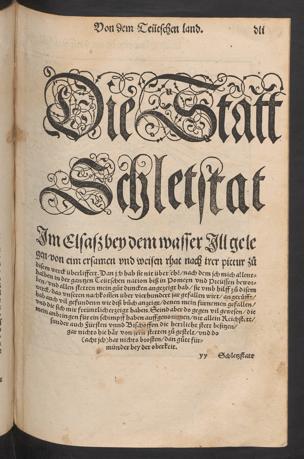 Von dem Teütschen land. dli
Die Statt
Schletstat
Im Elsasz bey dem wasser Ill gele
gen/ von eim ersamen vnd weisen rhat nach irer pictur zů
disem werck überliffert. Das ich hab sie nit über ehl/ nach dem ich mich allent-
halben in der gantzen Teütschen nation bisz in Pomern vnd Preüssen bewor
ben/ vnd allen stetten mein gůt duncken angezeigt hab/ sie vmb hilff zů disem
werck/ das vnseren nachkomen über vierhundert jar gefallen wirt/ an gerüfft/
hab auch vil gefunden wie disz bůch anzeigt/ denen mein fürnemen gefallen/
vnd die sich mir freüntlich erzeigt haben. Seind aber do gegen vil gewesen/ die
mein anbringen für ein schimpff haben auffgenommen/ nit allein Reichstett/
sunder auch Fürsten vnnd Bischoffen die herliche stett besitzen/
gar nichts dohin von jren stetten zů gestelt/ vnd do
(acht ich) hat nichts brosten/ dan gůte für-
münder bey der oberkeit.
yy Schletzstatt